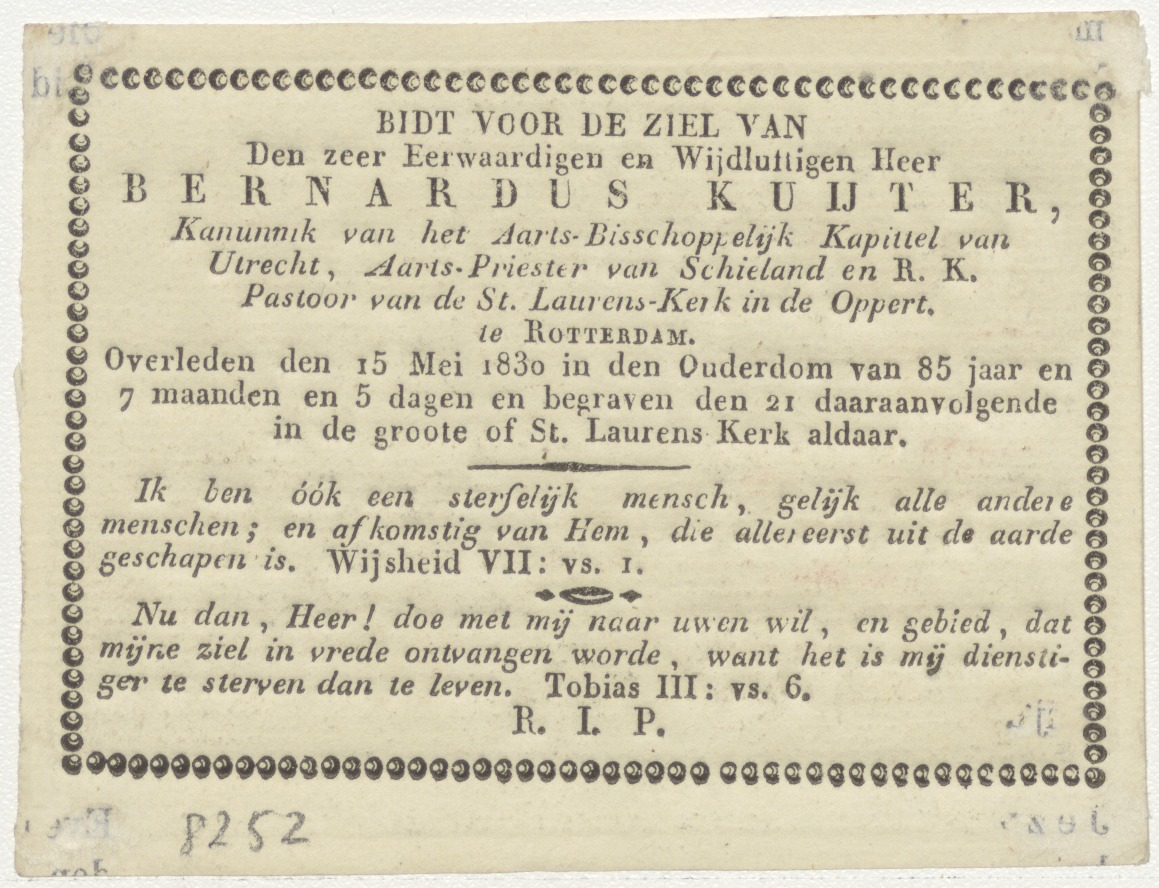 BIDT VOOR DE ZIEL VAN
Den zeer Eerwaardigen en Wijdluttigen Heer
BERNARDUS KUIJTER,
Kanunnik van het Aarts-Bisschoppelijk Kapittel van
Utrecht, Aarts-Priester van Schieland en R. K.
Pastoor van de St. Laurens-Kerk in de Oppert.
te ROTTERDAM.
Overleden den 15 Mei 1830 in den Ouderdom van 85 jaar en
7 maanden en 5 dagen en begraven den 21 daaraanvolgende
in de groote of St. Laurens Kerk aldaar.
Ik ben óók een sterfelijk mensch, gelijk alle andere
menschen; en afkomstig van Hem, die allereerst uit de aarde
geschapen is. Wijsheid VII: vs. 1.
Nu dan, Heer! doe met mij naar uwen wil, en gebied, dat
mijne ziel in vrede ontvangen worde, want het is mij diensti-
ger te sterven dan te leven. Tobias III: vs. 6.
R. I. P.
8252